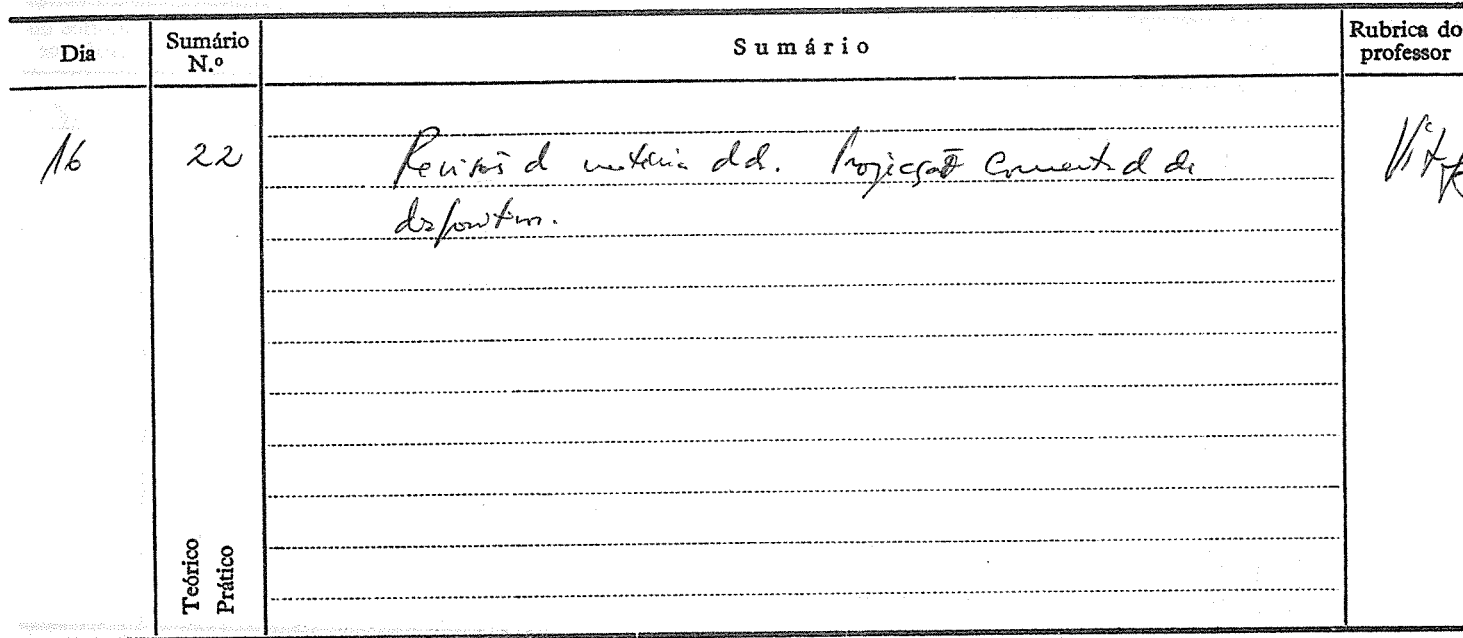 Dia
Sumário N.º
Sumário
Rubrica do professor
16
22
Revisão d matéria dada. Projecção comentada de
diapositivos.
Teórico
Prático